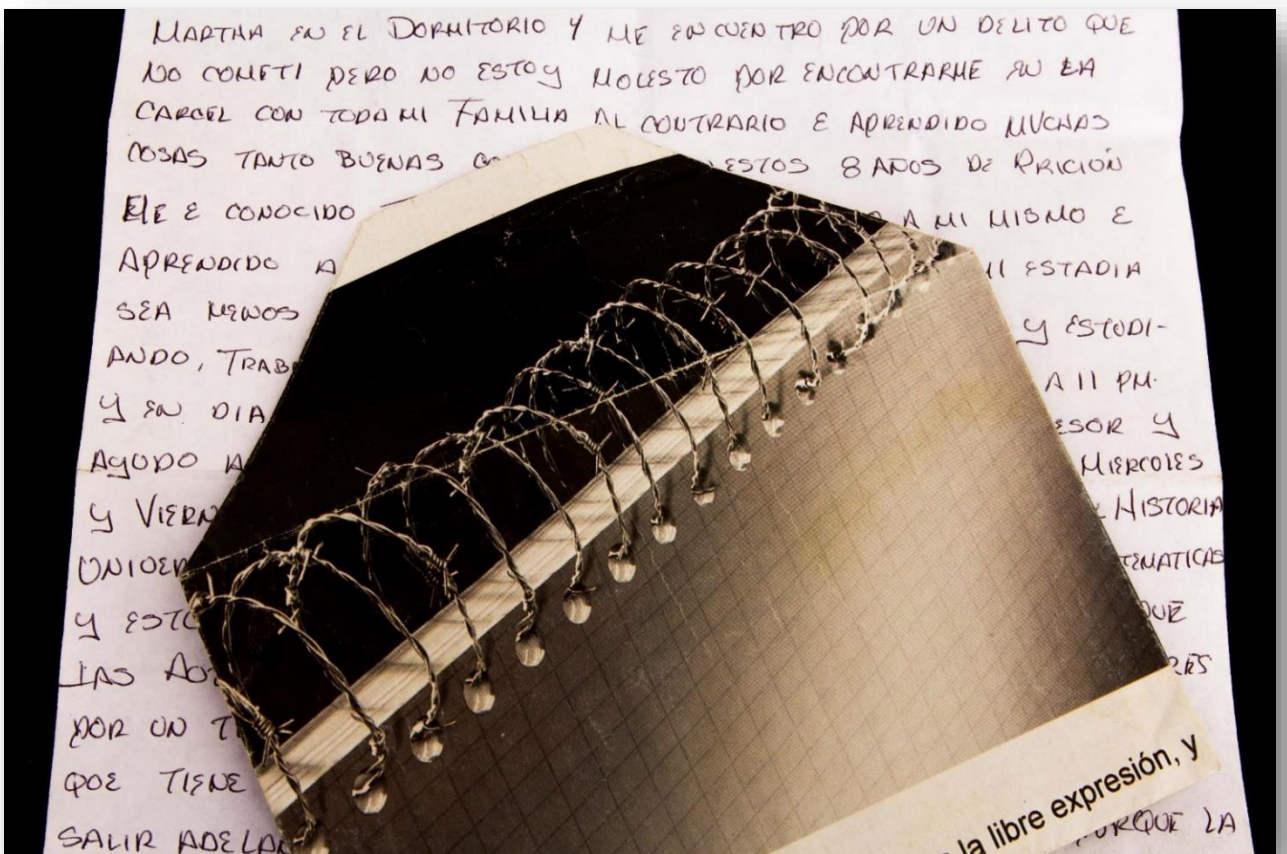 MARTHA EN EL DORMITORIO Y ME ENCUENTRO POR UN DELITO QUE
NO COMETI PERO NO ESTOY MOLESTO POR ENCONTRARME EN LA
CARCEL CON TODA MI FAMILIA AL CONTRARIO E APRENDIDO MUCHAS
COSAS TANTO BUENAS ESTOS 8 AÑOS DE PRICIÓN
ME E CONOCIDO A MI MISMO E
APRENDIDO A ESTADIA
SEA MENOS Y ESTUDI-
ANDO, A 11 PM.
Y EN DIA Y
AYUDO MIERCOLES
Y HISTORIA
Y
LAS
POR UN
QUE TIENE
SALIR LA
la libre expresión, y